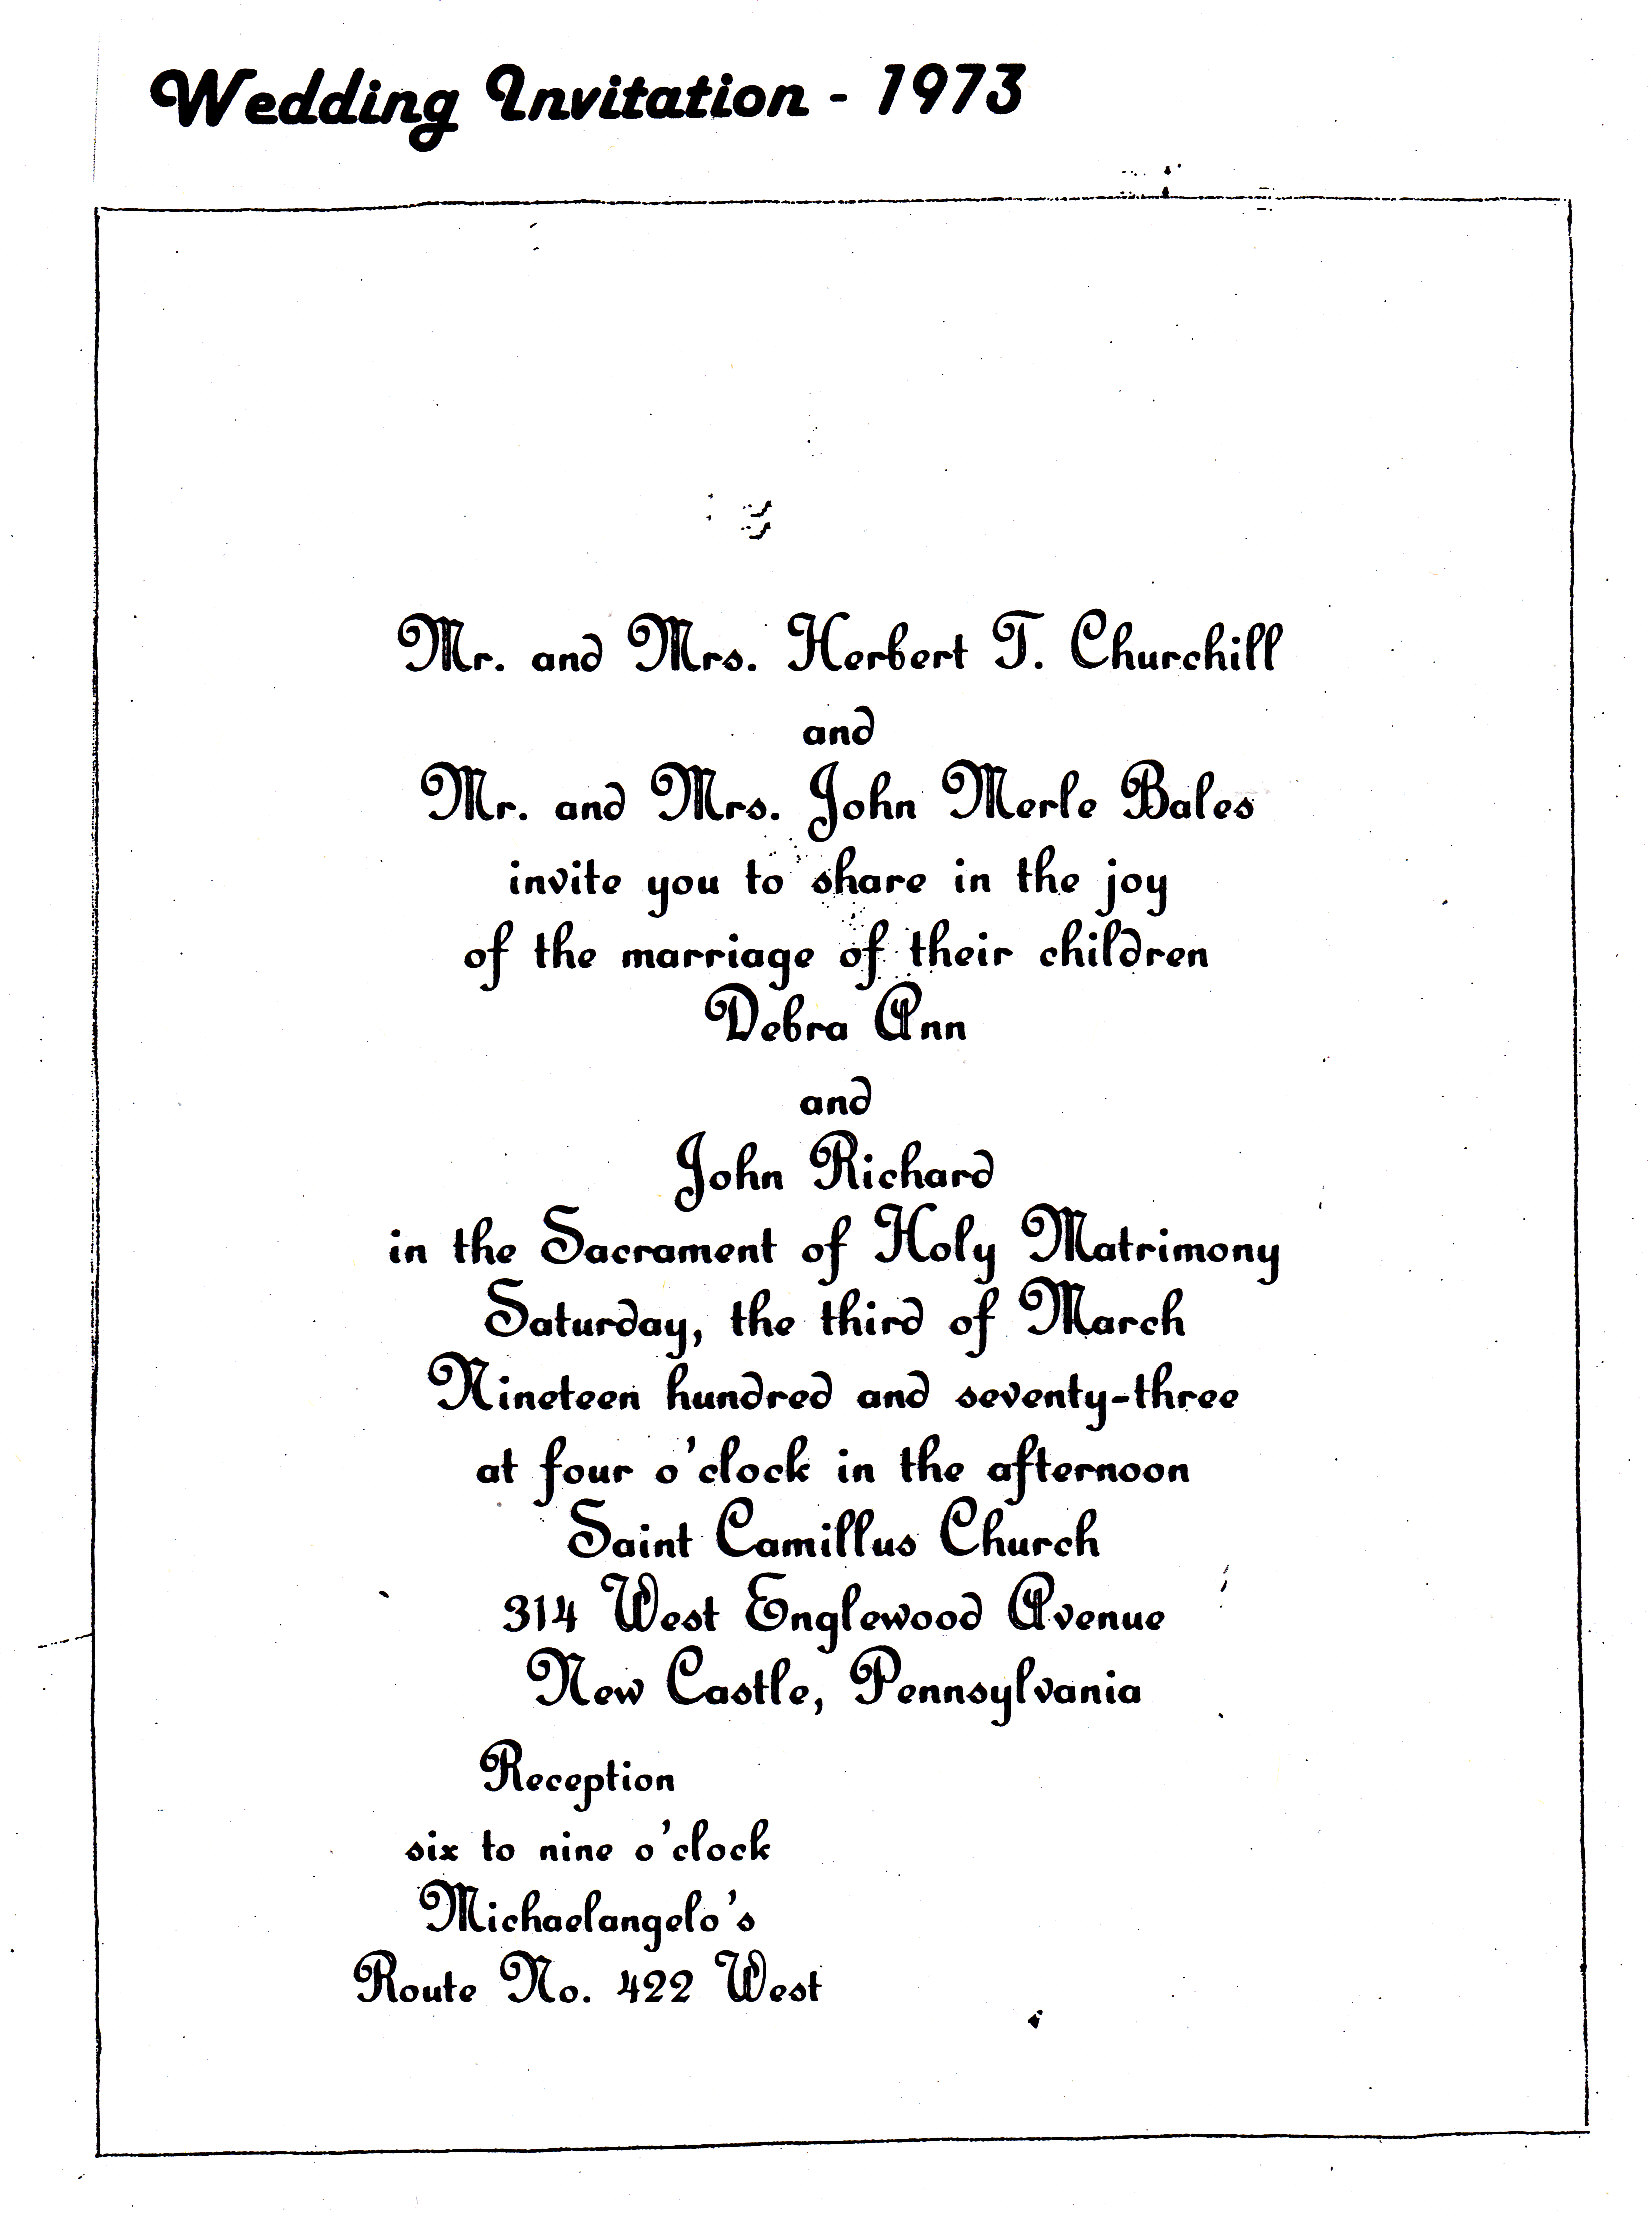 Wedding Invitation - 1973
Mr. and Mrs. Herbert T. Churchill
and
Mr. and Mrs. John Merle Bales
invite you to share in the joy
of the marriage of their children
Debra Ann
and
John Richard
in the Sacrament of Holy Matrimony
Saturday, the third of March
Nineteen hundred and seventy-three
at four o'clock in the afternoon
Saint Camillus Church
314 West Englewood Avenue
New Castle, Pennsylvania
Reception
six to nine o'clock
Michaelangelo's
Route No. 422 West